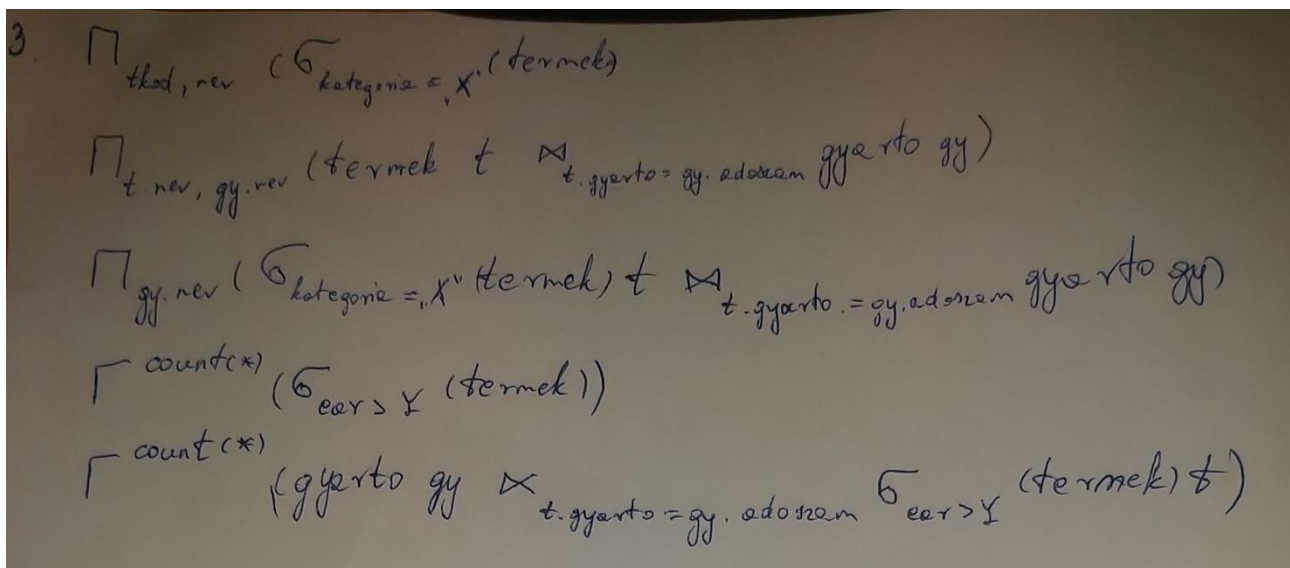 3. Π tkod, nev (σ kategoria = „X" (termek)
Π t.nev, gy.nev (termek t ⋈ t.gyarto = gy.adoszam gyarto gy)
Π gy.nev (σ kategoria = „X" (termek) t ⋈ t.gyarto. = gy.adoszam gyarto gy)
Γ count(*) (σ ear > Y (termek))
Γ count(*) (gyarto gy ⋉ t.gyarto = gy.adoszam σ ear > Y (termek) t)